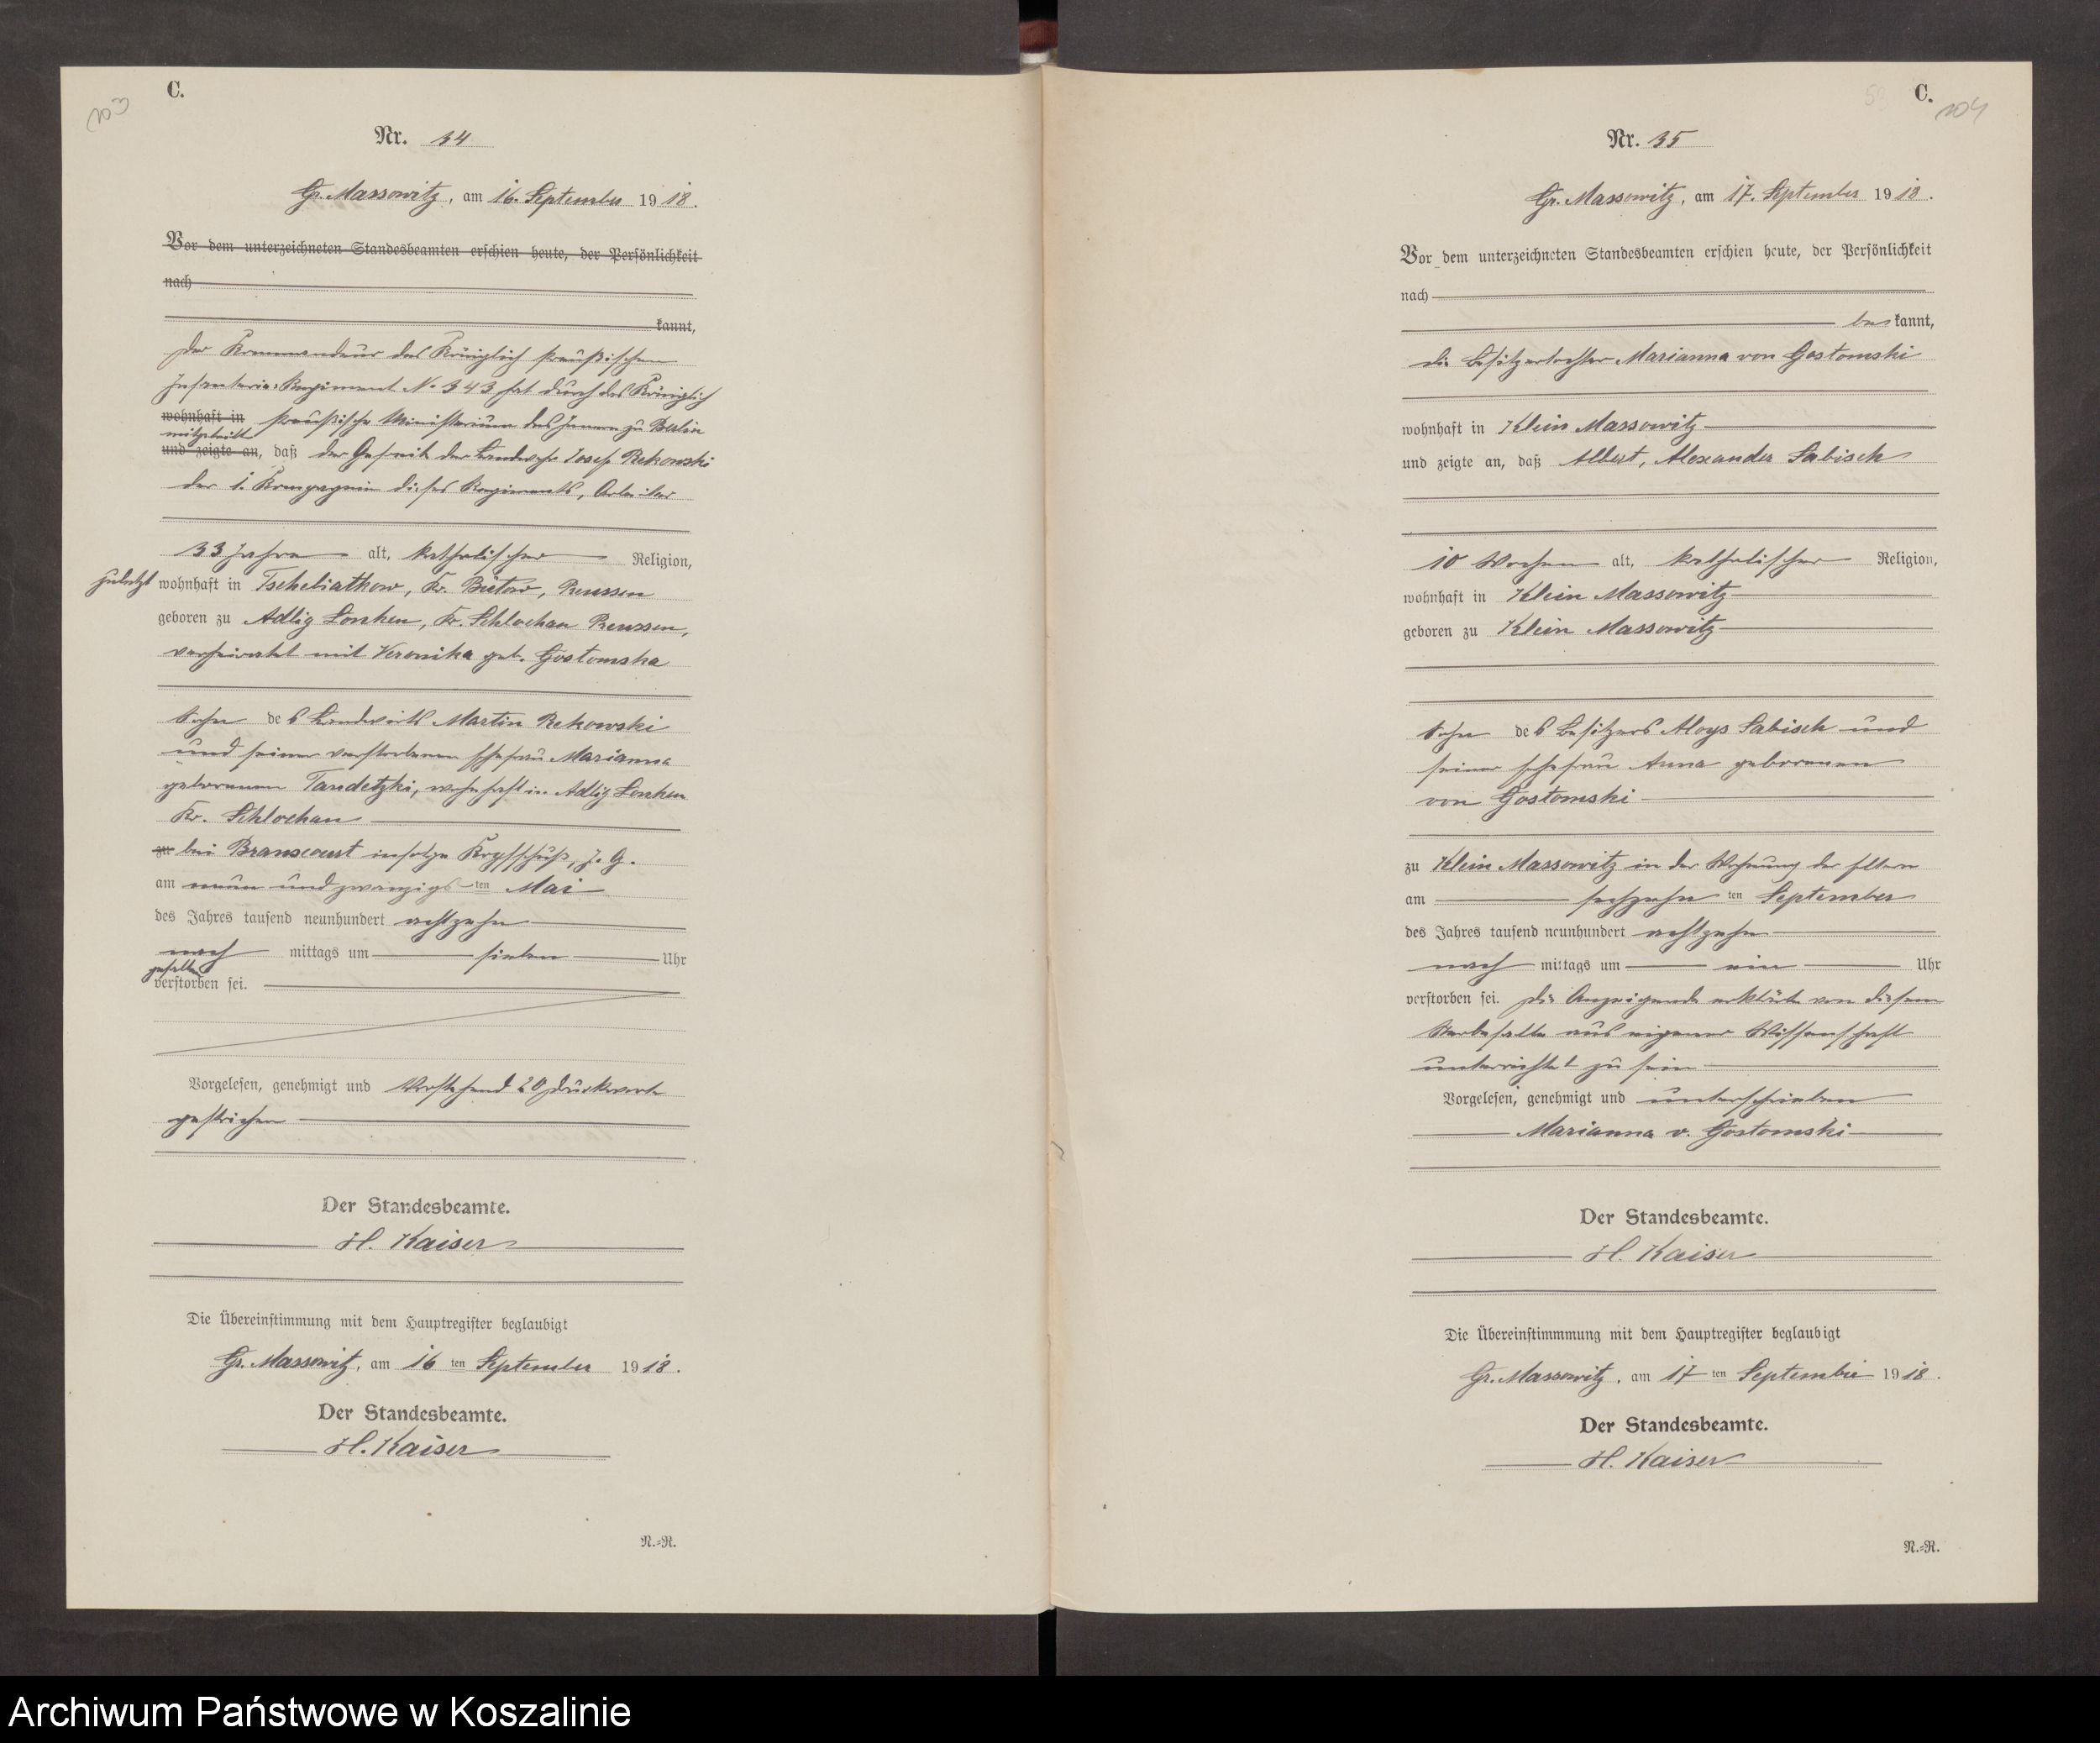 103
C.
Nr. 34
Gr. Massowitz, am 16. September 1918.
Vor dem unterzeichneten Standesbeamten erschien heute, der Persönlichkeit
nach
kannt,
Der Kommandeur des Königlich preußischen
Infanterie-Regiment No 343 hat durch das Königlich
wohnhaft in preußische Ministerium des Innern zu Berlin
mitgeteilt
und zeigte an, daß der Gefreite der Landwehr Josef Rekowski
der 1. Kompagnie dieses Regiments, Arbeiter
33 Jahre alt, katholischer Religion,
zuletzt wohnhaft in Tschebiatkow, Kr. Bütow, Preussen
geboren zu Adlig Lonken, Kr. Schlochau Preussen,
verheiratet mit Veronika geb. Gostomska
Sohn des Landwirts Martin Rekowski
und seiner verstorbenen Ehefrau Marianna
geborenen Tandetzki, wohnhaft in Adlig Lonken
Kr. Schlochau
zu bei Branscourt infolge Kopfschuß, J. G.
am neun und zwanzigsten Mai
des Jahres tausend neunhundert achtzehn
nach mittags um sieben Uhr
gefallen
verstorben sei.
Vorgelesen, genehmigt und Vorstehend 20 Druckworte
gestrichen
Der Standesbeamte.
H. Kaiser
Die Übereinstimmung mit dem Hauptregister beglaubigt
Gr. Massowitz, am 16 ten September 1918.
Der Standesbeamte.
H. Kaiser
N.-R.
C.
104
Nr. 35
Gr. Massowitz, am 17. September 1918.
Vor dem unterzeichneten Standesbeamten erschien heute, der Persönlichkeit
nach
bekannt,
die Besitzertochter Marianna von Gostomski
wohnhaft in Klein Massowitz
und zeigte an, daß Albert, Alexander Sabisch
10 Wochen alt, katholischer Religion,
wohnhaft in Klein Massowitz
geboren zu Klein Massowitz
Sohn des Besitzers Aloys Sabisch und
seiner Ehefrau Anna geborenen
von Gostomski
zu Klein Massowitz in der Wohnung der Eltern
am sechzehn ten September
des Jahres tausend neunhundert achtzehn
nach mittags um ein Uhr
verstorben sei. Die Anzeigende erklärte von diesem
Sterbefalle aus eigener Wissenschaft
unterrichtet zu sein
Vorgelesen, genehmigt und unterschrieben
Marianna v. Gostomski
Der Standesbeamte.
H. Kaiser
Die Übereinstimmmung mit dem Hauptregister beglaubigt
Gr. Massowitz, am 17 ten September 1918.
Der Standesbeamte.
H. Kaiser
N.-R.
Archiwum Państwowe w Koszalinie